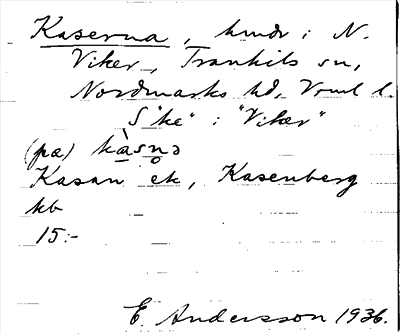 Kaserna, hmdr i N.
Viker, Trankils sn,
Nordmarks hd, Vrml l.
S "ke" i "Viker"
(pæ) kàsnə
Kasan ek, Kasenberg
kb
15:-
E. Andersson 1936.